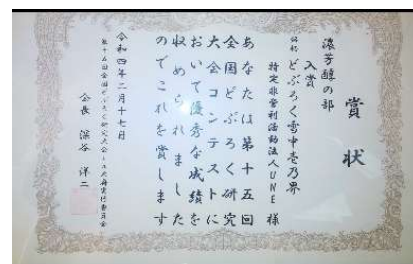 賞状
濃芳醇の部
入賞
銘柄 どぶろく雪中壱乃界
特定非営利活動法人UNE 様
あなたは第十五回
全国どぶろく研究
大会コンテストに
おいて優秀な成績を
収められました
のでこれを賞します
令和四年二月十七日
第十五回全国どぶろく研究大会
会長 深谷 洋二